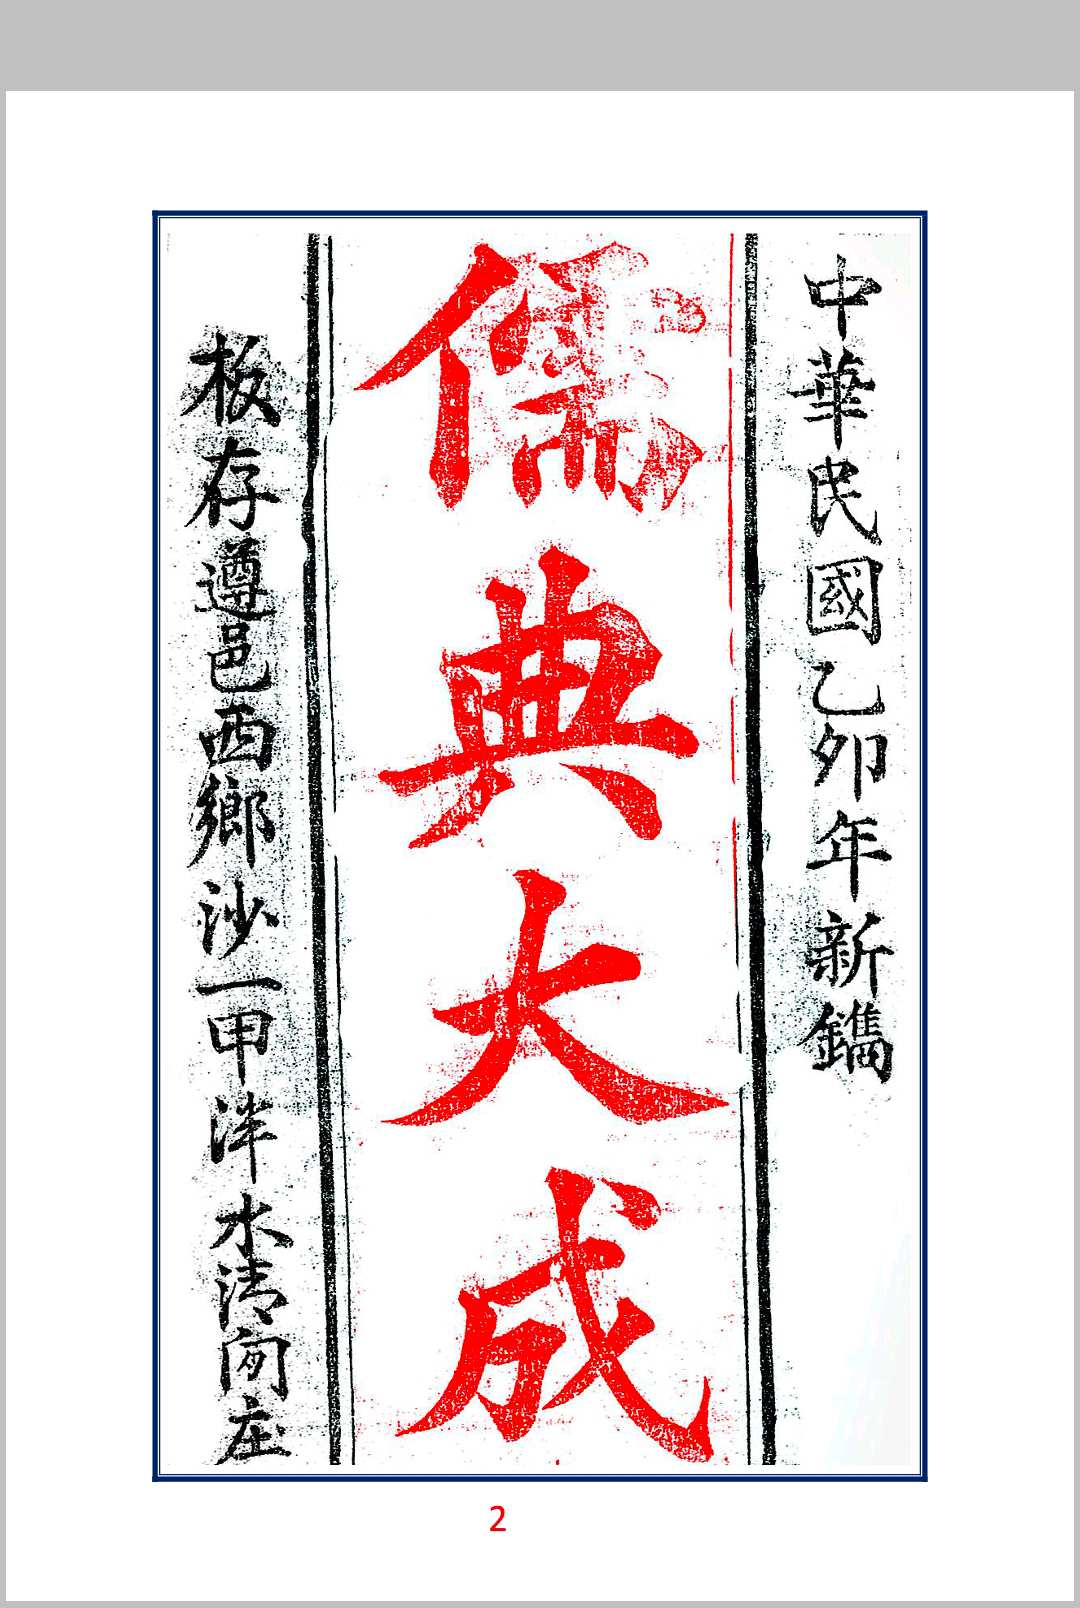 中華民國乙卯年新鐫
儒典大成
板存遵邑西鄉沙一甲泮水清閒庄
2